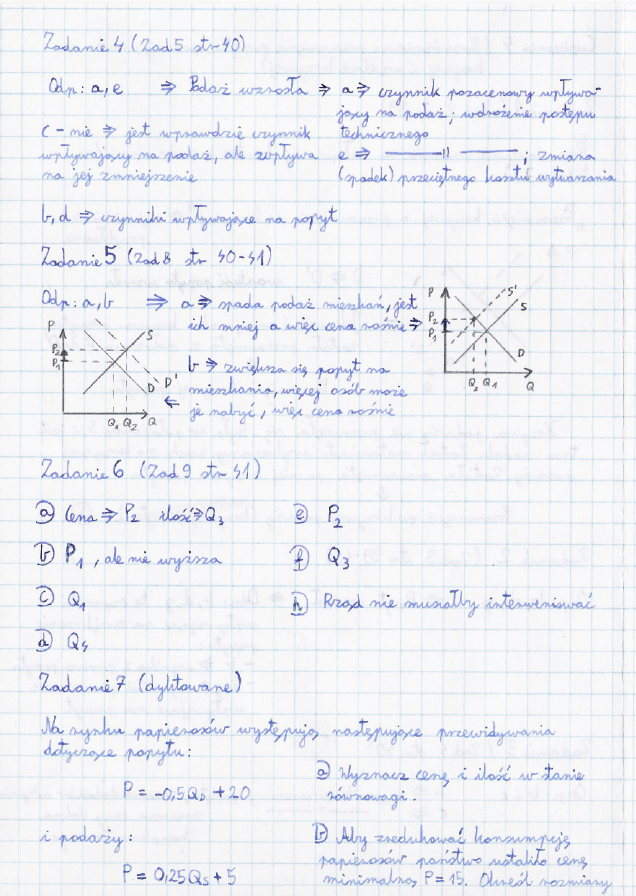 Zadanie 4 (Zad 5 str 40)
Odp: a, e ⇒ Podaż wzrosła ⇒ a ⇒ czynnik pozacenowy wpływa-
jący na podaż; wdrożenie postępu
technicznego
c - nie ⇒ jest wprawdzie czynnik
wpływający na podaż, ale wpływa
na jej zmniejszenie
e ⇒ —— || —— ; zmiana
(spadek) przeciętnego kosztu wytwarzania
b, d ⇒ czynniki wpływające na popyt
Zadanie 5 (Zad 8 str 40-41)
Odp: a, b ⇒ a ⇒ spada podaż mieszkań, jest
ich mniej a więc cena rośnie ⇒
b ⇒ zwiększa się popyt na
mieszkania, więcej osób może
je nabyć, więc cena rośnie
P
P2
P1
S
D
D'
Q1 Q2 Q
P
P2
P1
S'
S
D
Q2 Q1 Q
Zadanie 6 (Zad 9 str 41)
a) Cena ⇒ P2 ilość ⇒ Q3
b) P1, ale nie wyższa
c) Q1
d) Q4
e) P2
f) Q3
h) Rząd nie musiałby interweniować
Zadanie 7 (dyktowane)
Na rynku papierosów występują następujące przewidywania
dotyczące popytu:
P = -0,5QD + 20
i podaży:
P = 0,25QS + 5
a) Wyznacz cenę i ilość w stanie
równowagi.
b) Aby zredukować konsumpcję
papierosów państwo ustaliło cenę
minimalną P = 15. Określ rozmiary